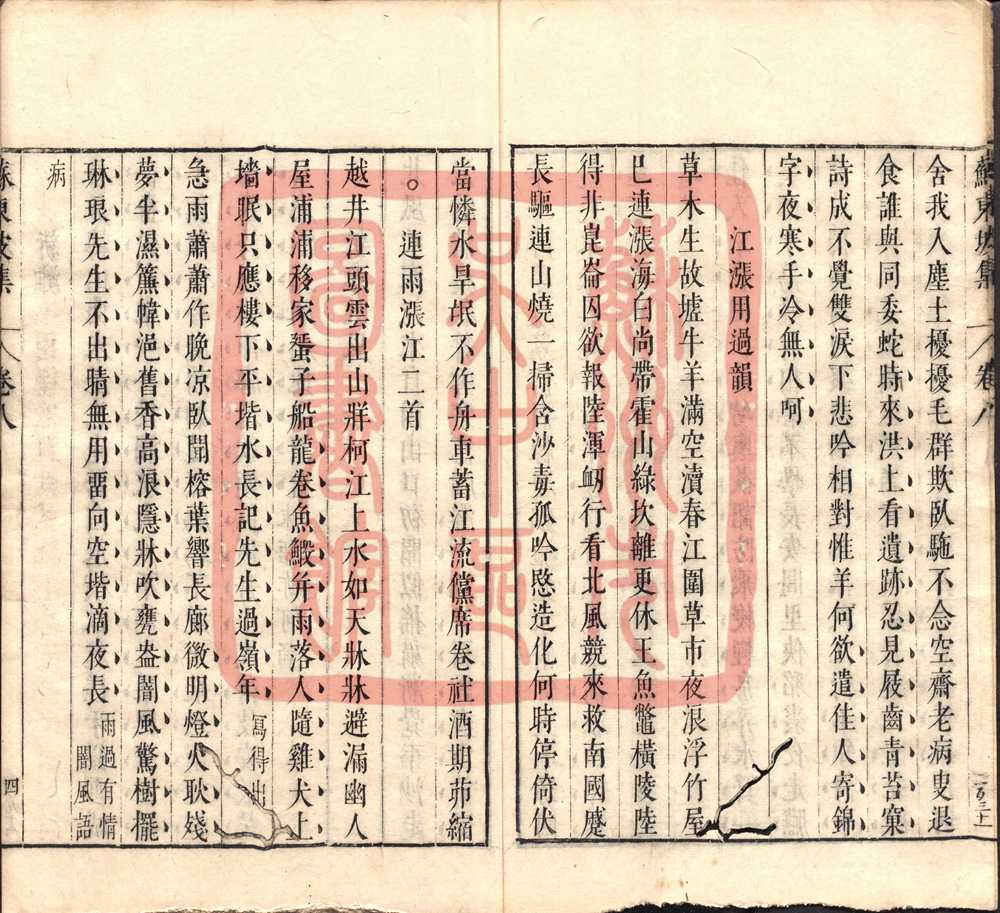 蘇東坡集 卷八
舍我入塵土擾擾毛群欺臥駞不念空齋老病叟退
食誰與同委蛇時來洪上看遺跡忍見屐齒青苔窠
詩成不覺雙淚下悲吟相對惟羊何欲遣佳人寄錦
字夜寒手冷無人呵
江漲用過韻
草木生故墟牛羊滿空瀆春江圍草市夜浪浮竹屋
已連漲海白尚帶霍山綠坎離更休王魚鼈橫陵陸
得非崑崙囚欲報陸渾衂行看北風競來救南國蹙
長驅連山燒一掃含沙毒孤吟愍造化何時停倚伏
當憐水旱氓不作舟車蓄江流黨席卷社酒期茆縮
○連雨漲江二首
越井江頭雲出山牂柯江上水如天牀牀避漏幽人
屋浦浦移家蜑子船龍卷魚鰕幷雨落人隨雞犬上
墻眠只應樓下平堦水長記先生過嶺年 寫得出
急雨蕭蕭作晚凉臥聞榕葉響長廊微明燈火耿殘
夢半濕簾幃浥舊香高浪隱牀吹甕盎闇風驚樹擺
琳琅先生不出晴無用畱向空堦滴夜長 雨過有情闇風語
病
蘇東坡集 卷八 四